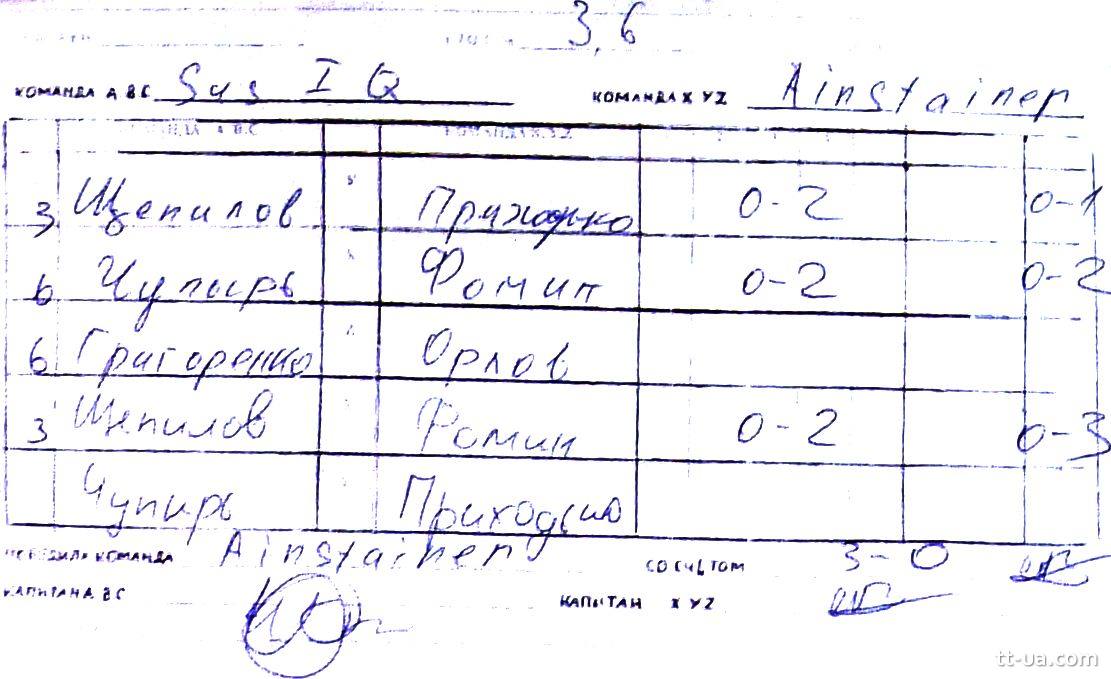 3,6
КОМАНДА А ВС Sus IQ КОМАНДА Х УZ Ainstainer
КОМАНДА А.В.С КОМАНДА Х.У.Z
3 Щепилов Приходько 0-2 0-1
6 Чупырь Фомин 0-2 0-2
6 Григоренко Орлов
3 Щепилов Фомин 0-2 0-3
Чупирь Приходько
ПОБЕДИЛА КОМАНДА Ainstainer СО СЧЕТОМ 3-0
КАПИТАН А ВС КАПИТАН Х УZ
tt-ua.com